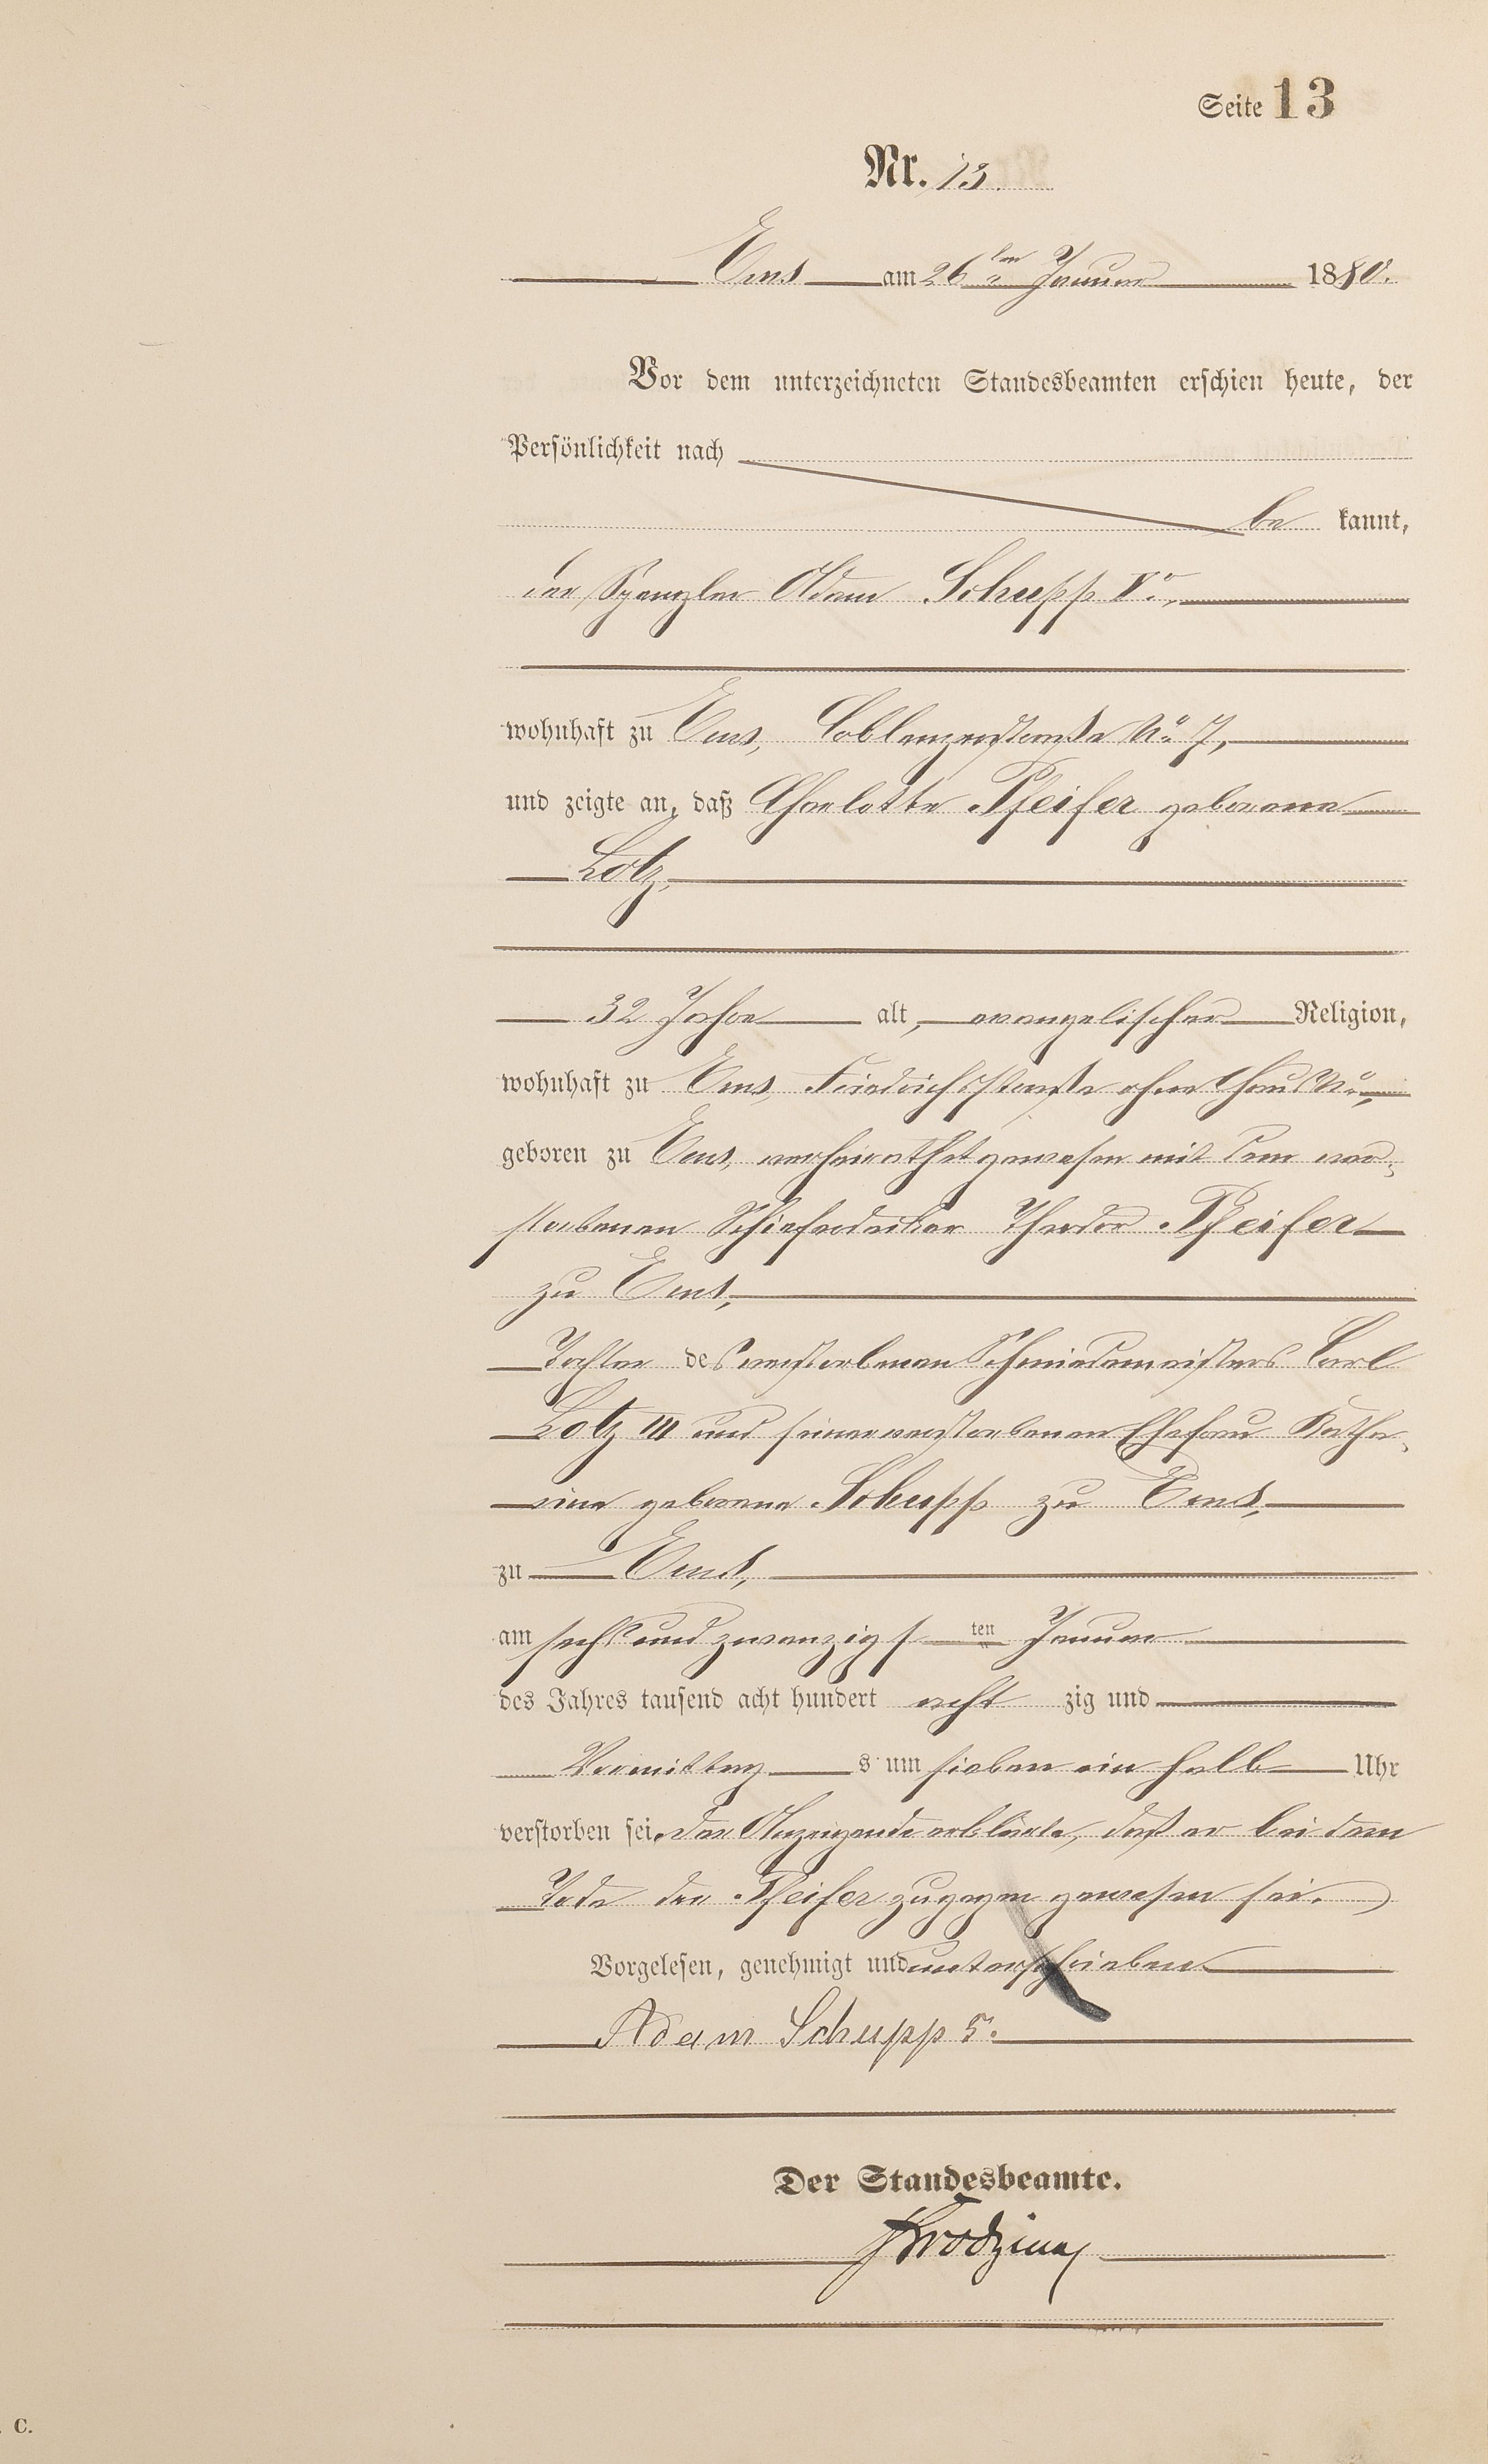 Seite 13
Nr. 13.
Ems am 26ten Januar 1880.
Vor dem unterzeichneten Standesbeamten erschien heute, der
Persönlichkeit nach
be kannt,
der Spengler Adam Schupp Vr.,
wohnhaft zu Ems, Coblenzerstraße No. 7,
und zeigte an, daß Charlotte Pfeifer geborene
Lotz,
32 Jahre alt, evangelischer Religion,
wohnhaft zu Ems, Friedrichsstraße ohne Haus No.,
geboren zu Ems, verheirathet gewesen mit dem ver-
storbenen Schieferdecker Theodor Pfeifer
zu Ems,
Tochter des verstorbenen Schmiedemeisters Carl
Lotz III und seiner verstorbenen Ehefrau Katha-
rina geborene Schupp zu Ems,
zu Ems,
am sechsundzwanzigsten Januar
des Jahres tausend acht hundert acht zig und
Vormittag s um sieben ein halb Uhr
verstorben sei. Der Anzeigende erklärte, daß er bei dem
Tode der Pfeifer zugegen gewesen sei.
Vorgelesen, genehmigt und unterschrieben
Adam Schupp 5.
Der Standesbeamte.
C.